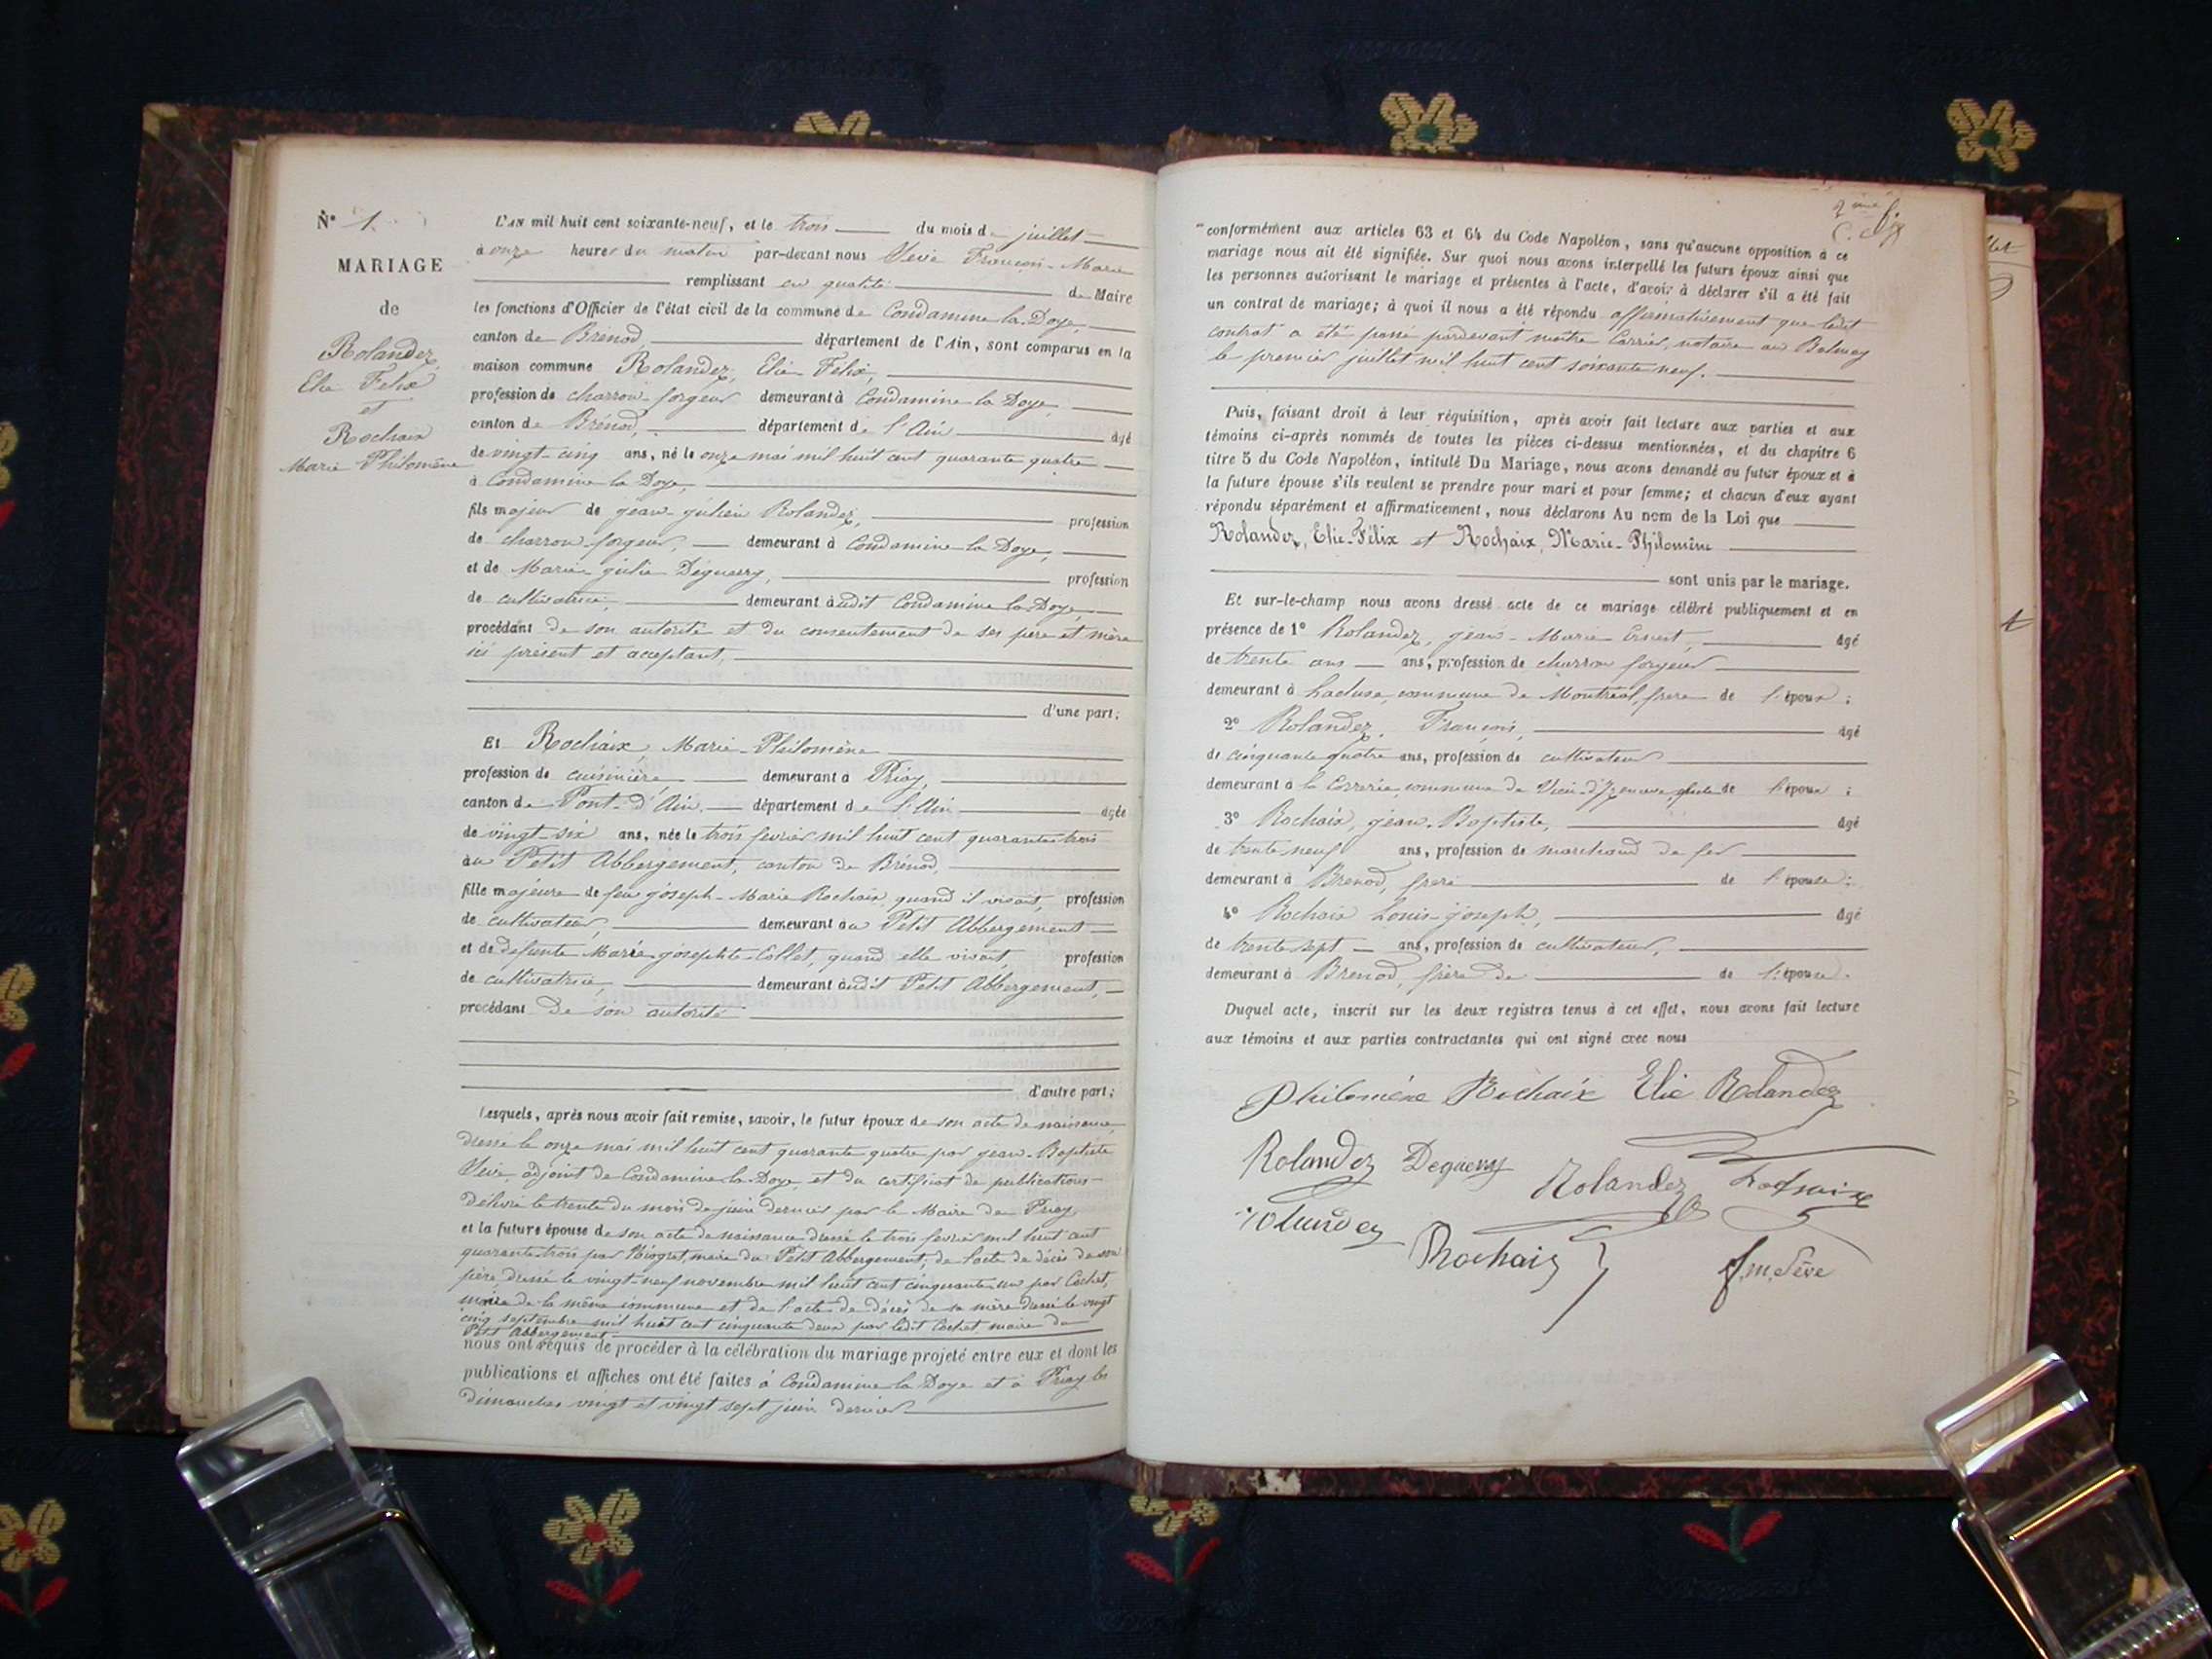 N° 1
MARIAGE
de
Rolandez,
Elie Felix
et
Rochaix
Marie Philomène
L'AN mil huit cent soixante-neuf, et le trois du mois de juillet
à onze heures du matin par-devant nous Sève François-Marie
remplissant en qualité de Maire
les fonctions d'Officier de l'état civil de la commune de Condamine la Doye,
canton de Brénod, département de l'Ain, sont comparus en la
maison commune Rolandez, Elie Felix,
profession de charron-forgeur demeurant à Condamine la Doye,
canton de Brénod, département de l'Ain âgé
de vingt-cinq ans, né le onze mai mil huit cent quarante quatre
à Condamine la Doye,
fils majeur de jean-julien Rolandez, profession
de charron-forgeur, demeurant à Condamine la Doye,
et de Marie julie Déguerry, profession
de cultivatrice, demeurant àudit Condamine la Doye,
procédant de son autorité et du consentement de ses père et mère
ici présent et acceptant,
d'une part;
Et Rochaix, Marie-Philomène
profession de cuisinière demeurant à Priay,
canton de Pont-d'Ain, département de l'Ain âgée
de vingt-six ans, née le trois fevrier mil huit cent quarante trois
àu Petit Abbergement, canton de Brénod,
fille majeure de feu joseph-Marie Rochaix, quand il vivait, profession
de cultivateur, demeurant àu Petit Abbergement
et de defunte Marie josephte Collet, quand elle vivait, profession
de cultivatrice, demeurant àudit Petit Abbergement,
procédant de son autorité
d'autre part;
Lesquels, après nous avoir fait remise, savoir, le futur époux de son acte de naissance
dressé le onze mai mil huit cent quarante quatre par jean-Baptiste
Sève, adjoint de Condamine la Doye, et du certificat de publications
délivré le trente du mois de juin dernier par le Maire de Priay
et la future épouse de son acte de naissance dressé le trois fevrier mil huit cent
quarante trois par maire du Petit Abbergement, de l'acte de décès de son
père, dressé le vingt-neuf novembre mil huit cent cinquante un par Cochet,
maire de la même commune et de l'acte de décès de sa mère dressé le vingt
cinq septembre mil huit cent cinquante deux par ledit Cochet maire du
Petit Abbergement
nous ont requis de procéder à la célébration du mariage projeté entre eux et dont les
publications et affiches ont été faites à Condamine la Doye et à Priay les
dimanches vingt et vingt sept juin dernier
2me f.
conformément aux articles 63 et 64 du Code Napoléon, sans qu'aucune opposition à ce
mariage nous ait été signifiée. Sur quoi nous avons interpellé les futurs époux ainsi que
les personnes autorisant le mariage et présentes à l'acte, d'avoir à déclarer s'il a été fait
un contrat de mariage; à quoi il nous a été répondu affirmativement que ledit
contrat a été passé pardevant maître Carrier, notaire au Balmay
le premier juillet mil huit cent soixante neuf.
Puis, faisant droit à leur réquisition, après avoir fait lecture aux parties et aux
témoins ci-après nommés de toutes les pièces ci-dessus mentionnées, et du chapitre 6
titre 5 du Code Napoléon, intitulé Du Mariage, nous avons demandé au futur époux et à
la future épouse s'ils veulent se prendre pour mari et pour femme; et chacun d'eux ayant
répondu séparément et affirmativement, nous déclarons Au nom de la Loi que
Rolandez, Elie-Félix et Rochaix, Marie-Philomène
sont unis par le mariage.
Et sur-le-champ nous avons dressé acte de ce mariage célébré publiquement et en
présence de 1° Rolandez, jean-Marie Ernest, âgé
de trente ans ans, profession de charron forgeur
demeurant à Lacluse, commune de Montréal, frère de l'époux;
2° Rolandez, François, âgé
de cinquante quatre ans, profession de cultivateur
demeurant à la commune de Vieu-d'Izenave de l'époux;
3° Rochaix, jean-Baptiste, âgé
de trente neuf ans, profession de marchand de fer
demeurant à Brenod, frère de l'épouse;
4° Rochaix Louis-joseph, âgé
de trente sept ans, profession de cultivateur,
demeurant à Brenod, frère de de l'épouse.
Duquel acte, inscrit sur les deux registres tenus à cet effet, nous avons fait lecture
aux témoins et aux parties contractantes qui ont signé avec nous
Philomène Rochaix Elie Rolandez
Rolandez Deguerry Rolandez
Rolandez
Rochaix f. m. Sève